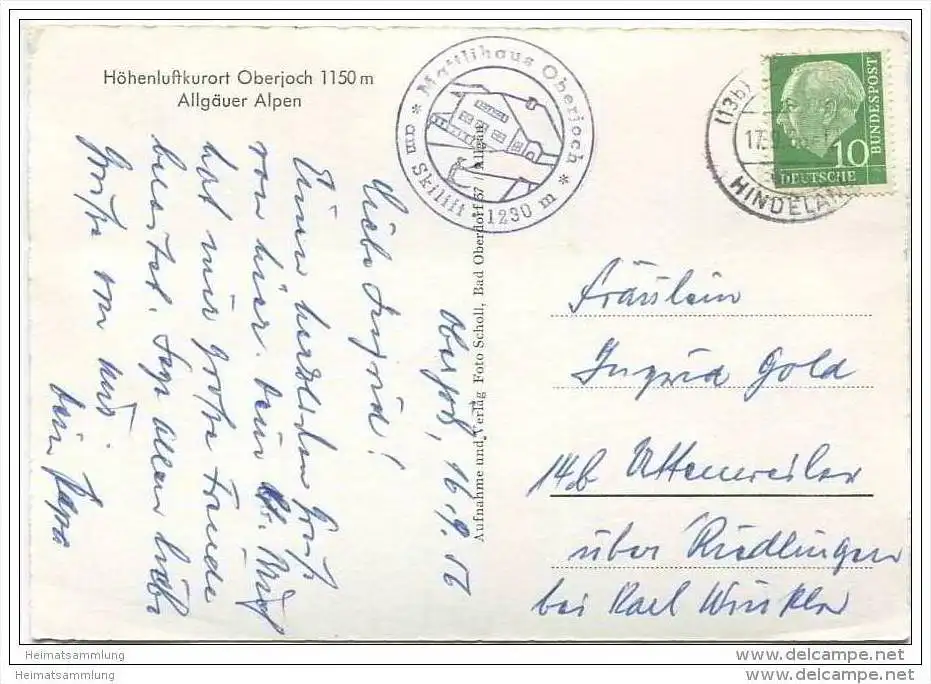 Höhenluftkurort Oberjoch 1150 m
Allgäuer Alpen
* Mattlihaus Oberjoch *
am Skilift 1230 m
(13b)
HINDELANG
DEUTSCHE
BUNDESPOST
10
Aufnahme und Verlag Foto Scholl, Bad Oberdorf 57 / Allgäu
Oberjoch, 16.9.56
Liebe Ingrid!
Einen herzlichen Gruß
von hier. Dein
hat mir große Freude
bereitet. Sage allen liebe
Grüße von uns
dein Papa
Fräulein
Ingrid Gold
14b Uttenweiler
über Riedlingen
bei Karl Winkler
Heimatsammlung
Heimatsammlung
www.delcampe.net
www.delcampe.net